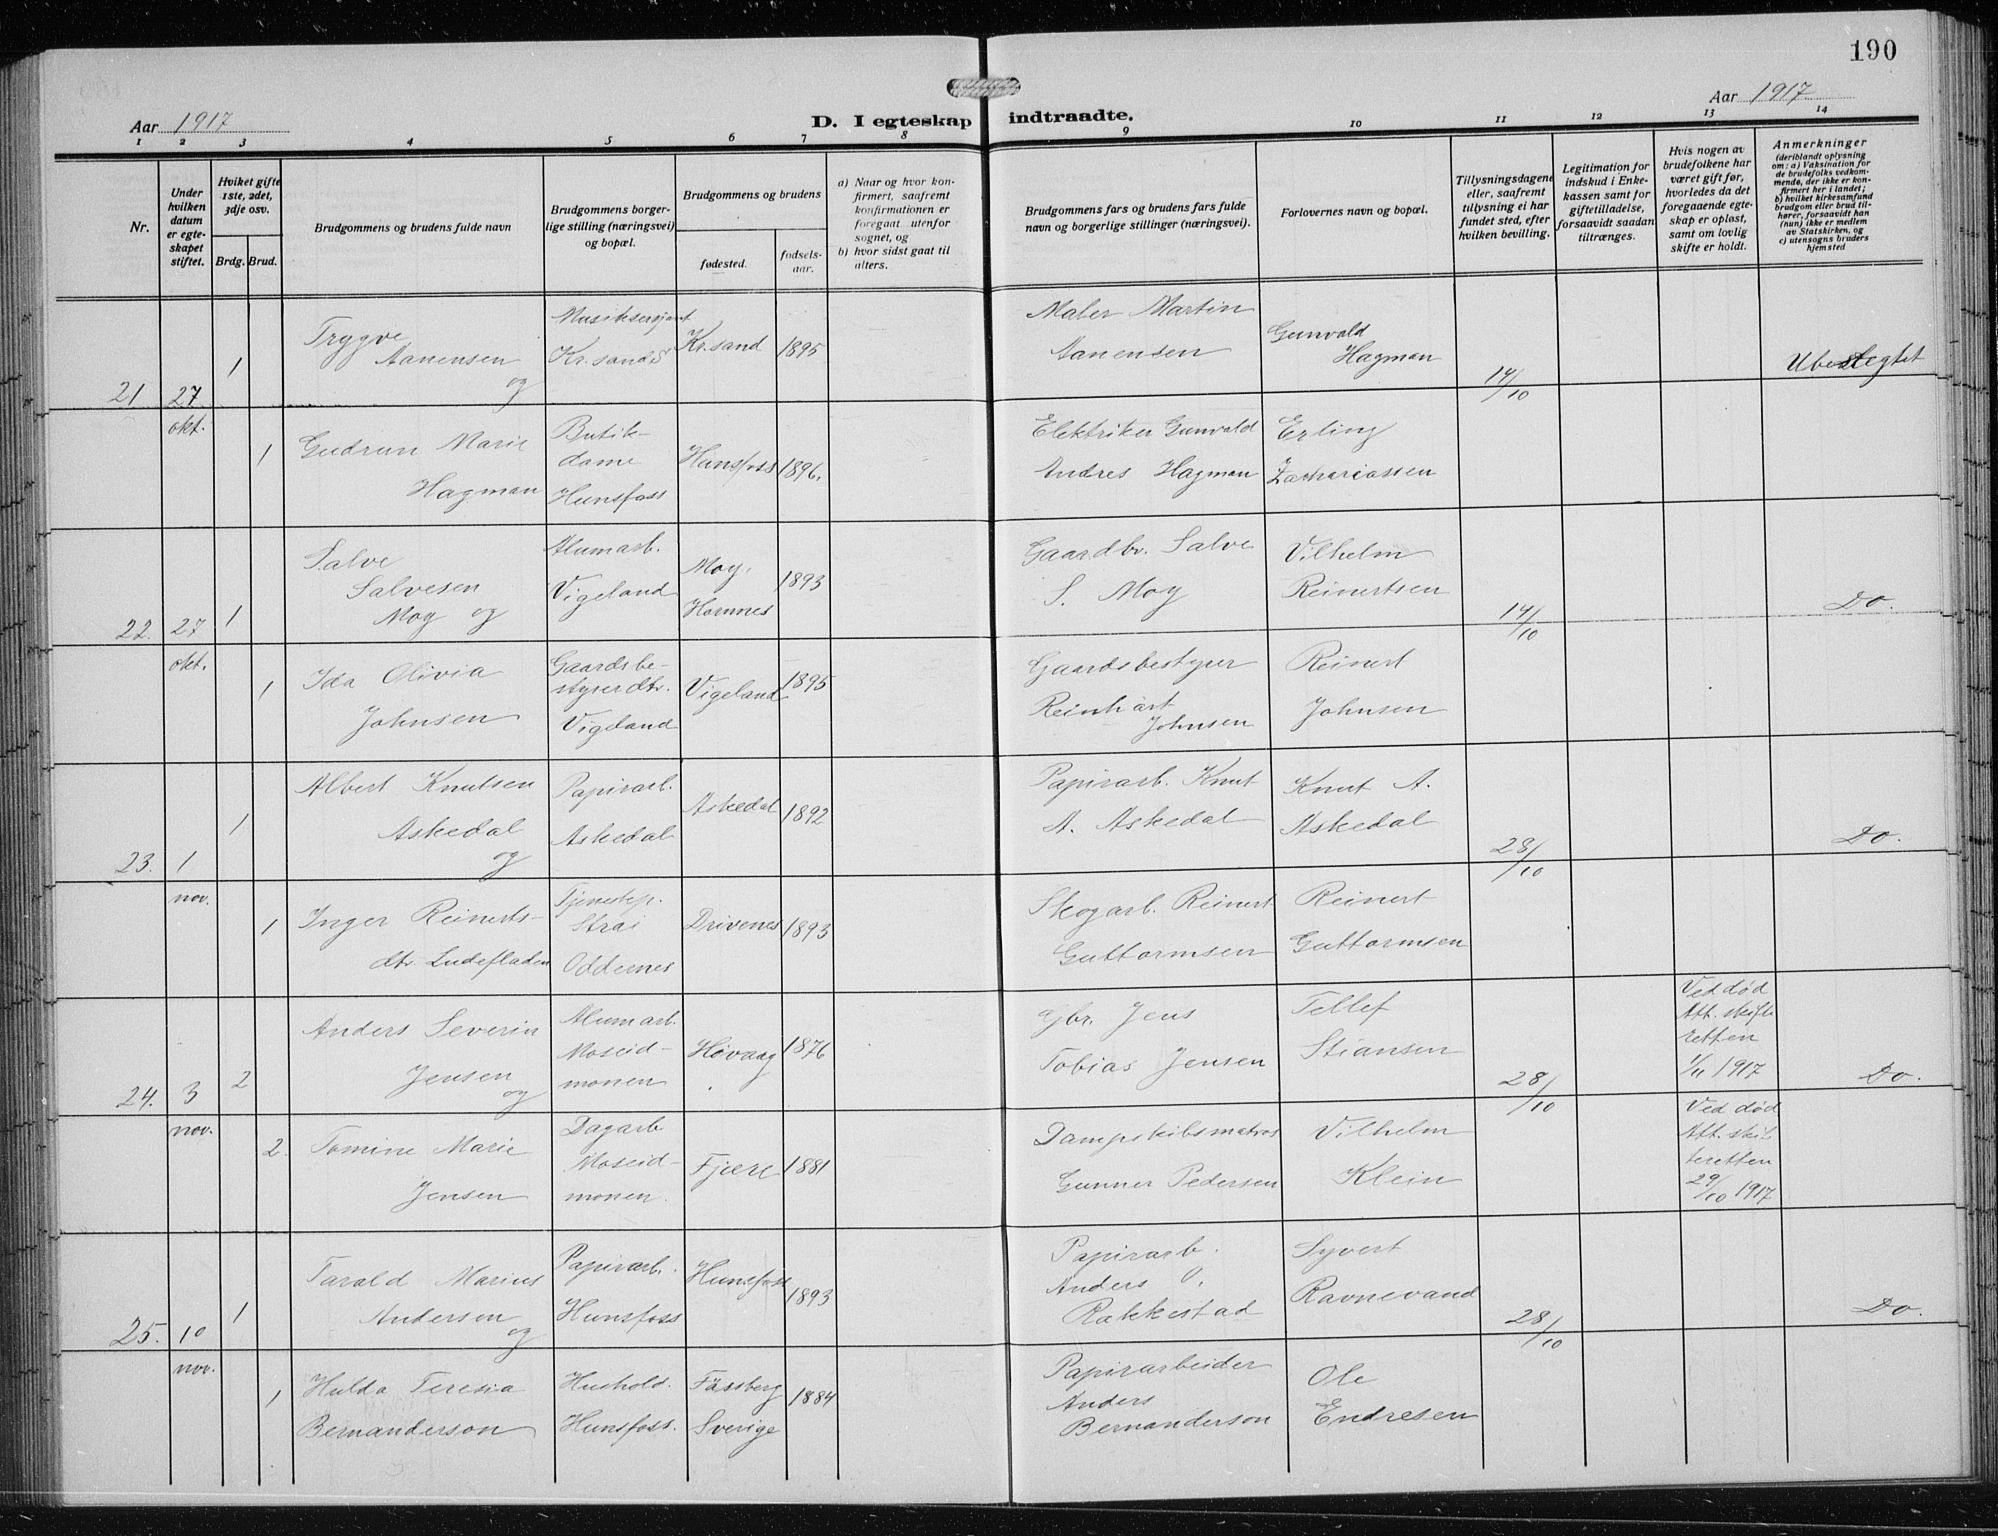 190
Aar 1917
D. I egteskap indtraadte.
Aar 1917
1 2 3 4 5 6 7 8 9 10 11 12 13 14
Nr.
Under hvilken datum er egteskapet stiftet.
Hviket gifte 1ste, 2det, 3dje osv.
Brdg. Brud.
Brudgommens og brudens fulde navn
Brudgommens borgerlige stilling (næringsvei) og bopæl.
Brudgommens og brudens
fødested.
fødsels-aar.
a) Naar og hvor konfirmert, saafremt konfirmationen er foregaat utenfor sognet, og
b) hvor sidst gaat til alters.
Brudgommens fars og brudens fars fulde navn og borgerlige stillinger (næringsvei).
Forlovernes navn og bopæl.
Tillysningsdagene eller, saafremt tillysning ei har fundet sted, efter hvilken bevilling.
Legitimation for indskud i Enkekassen samt for giftetilladelse, forsaavidt saadan tiltrænges.
Hvis nogen av brudefolkene har været gift før, hvorledes da det foregaaende egteskap er opløst, samt om lovlig skifte er holdt.
Anmerkninger
(deriblandt oplysning om: a) Vaksination for de brudefolks vedkommende, der ikke er konfirmert her i landet; b) hvilket kirkesamfund brudgom eller brud tilhører, forsaavidt han (hun) ikke er medlem av Statskirken, og c) utensogns bruders hjemsted
21 27 okt. 1
Trygve
Aanensen
og
Musiksersjant
Kr.sand S
Kr.sand 1895
Maler Martin
Aanensen
Gunvald
Hagman
14/10
Ubeslegtet
1
Gudrun Marie
Hagman
Butik-
dame
Hunsfoss
Hunsfoss 1896.
Elektriker Gunvald
Andres Hagman
Erling
Zachariassen
22. 27 okt. 1
Salve
Salvesen
Moy og
Alumarb.
Vigeland
Moy,
Hornnes
1893
Gaardbr. Salve
S. Moy
Vilhelm
Reinertsen
14/10
Do.
1
Ida Olivia
Johnsen
Gaardsbe-
styrerdtr.
Vigeland
Vigeland 1895
Gaardsbestyrer
Reinhart
Johnsen
Reinert
Johnsen
23. 1 nov. 1
Albert Knutsen
Askedal
og
Papirarb.
Askedal
Askedal 1892
Papirarb. Knut
A. Askedal
Knut A.
Askedal
28/10
Do.
1
Inger Reinerts-
dtr. Ludefladen
Tjenestep.
Strai
Oddernes
Drivenes 1893
Skogarb. Reinert
Guttormsen
Reinert
Guttormsen
24. 3 nov. 2
Anders Severin
Jensen
og
Alumarb.
Moseid-
monen
Høvaag 1876
Gbr. Jens
Tobias Jensen
Tellef
Stiansen
28/10
Ved død
Att. skifte
retten
1/11 1917
Do.
2.
Tomine Marie
Jensen
Dagarb
Moseid-
monen.
Fjære 1881
Dampskibsmatros
Gunner Pedersen
Vilhelm
Klein
Ved død
Att. skif
teretten
29/10 1917
25. 10 nov. 1
Tarald Marius
Anderson
og
Papirarb.
Hunsfoss
Hunsfoss
1893
Papirarb.
Anders O.
Rakkestad
Syvert
Ravnevand
28/10
Do.
1
Hulda Teresia
Bernanderson
Hushold.
Hunsfoss.
Fässberg
Sverige
1884
Papirarbeider
Anders
Bernanderson
Ole
Endresen